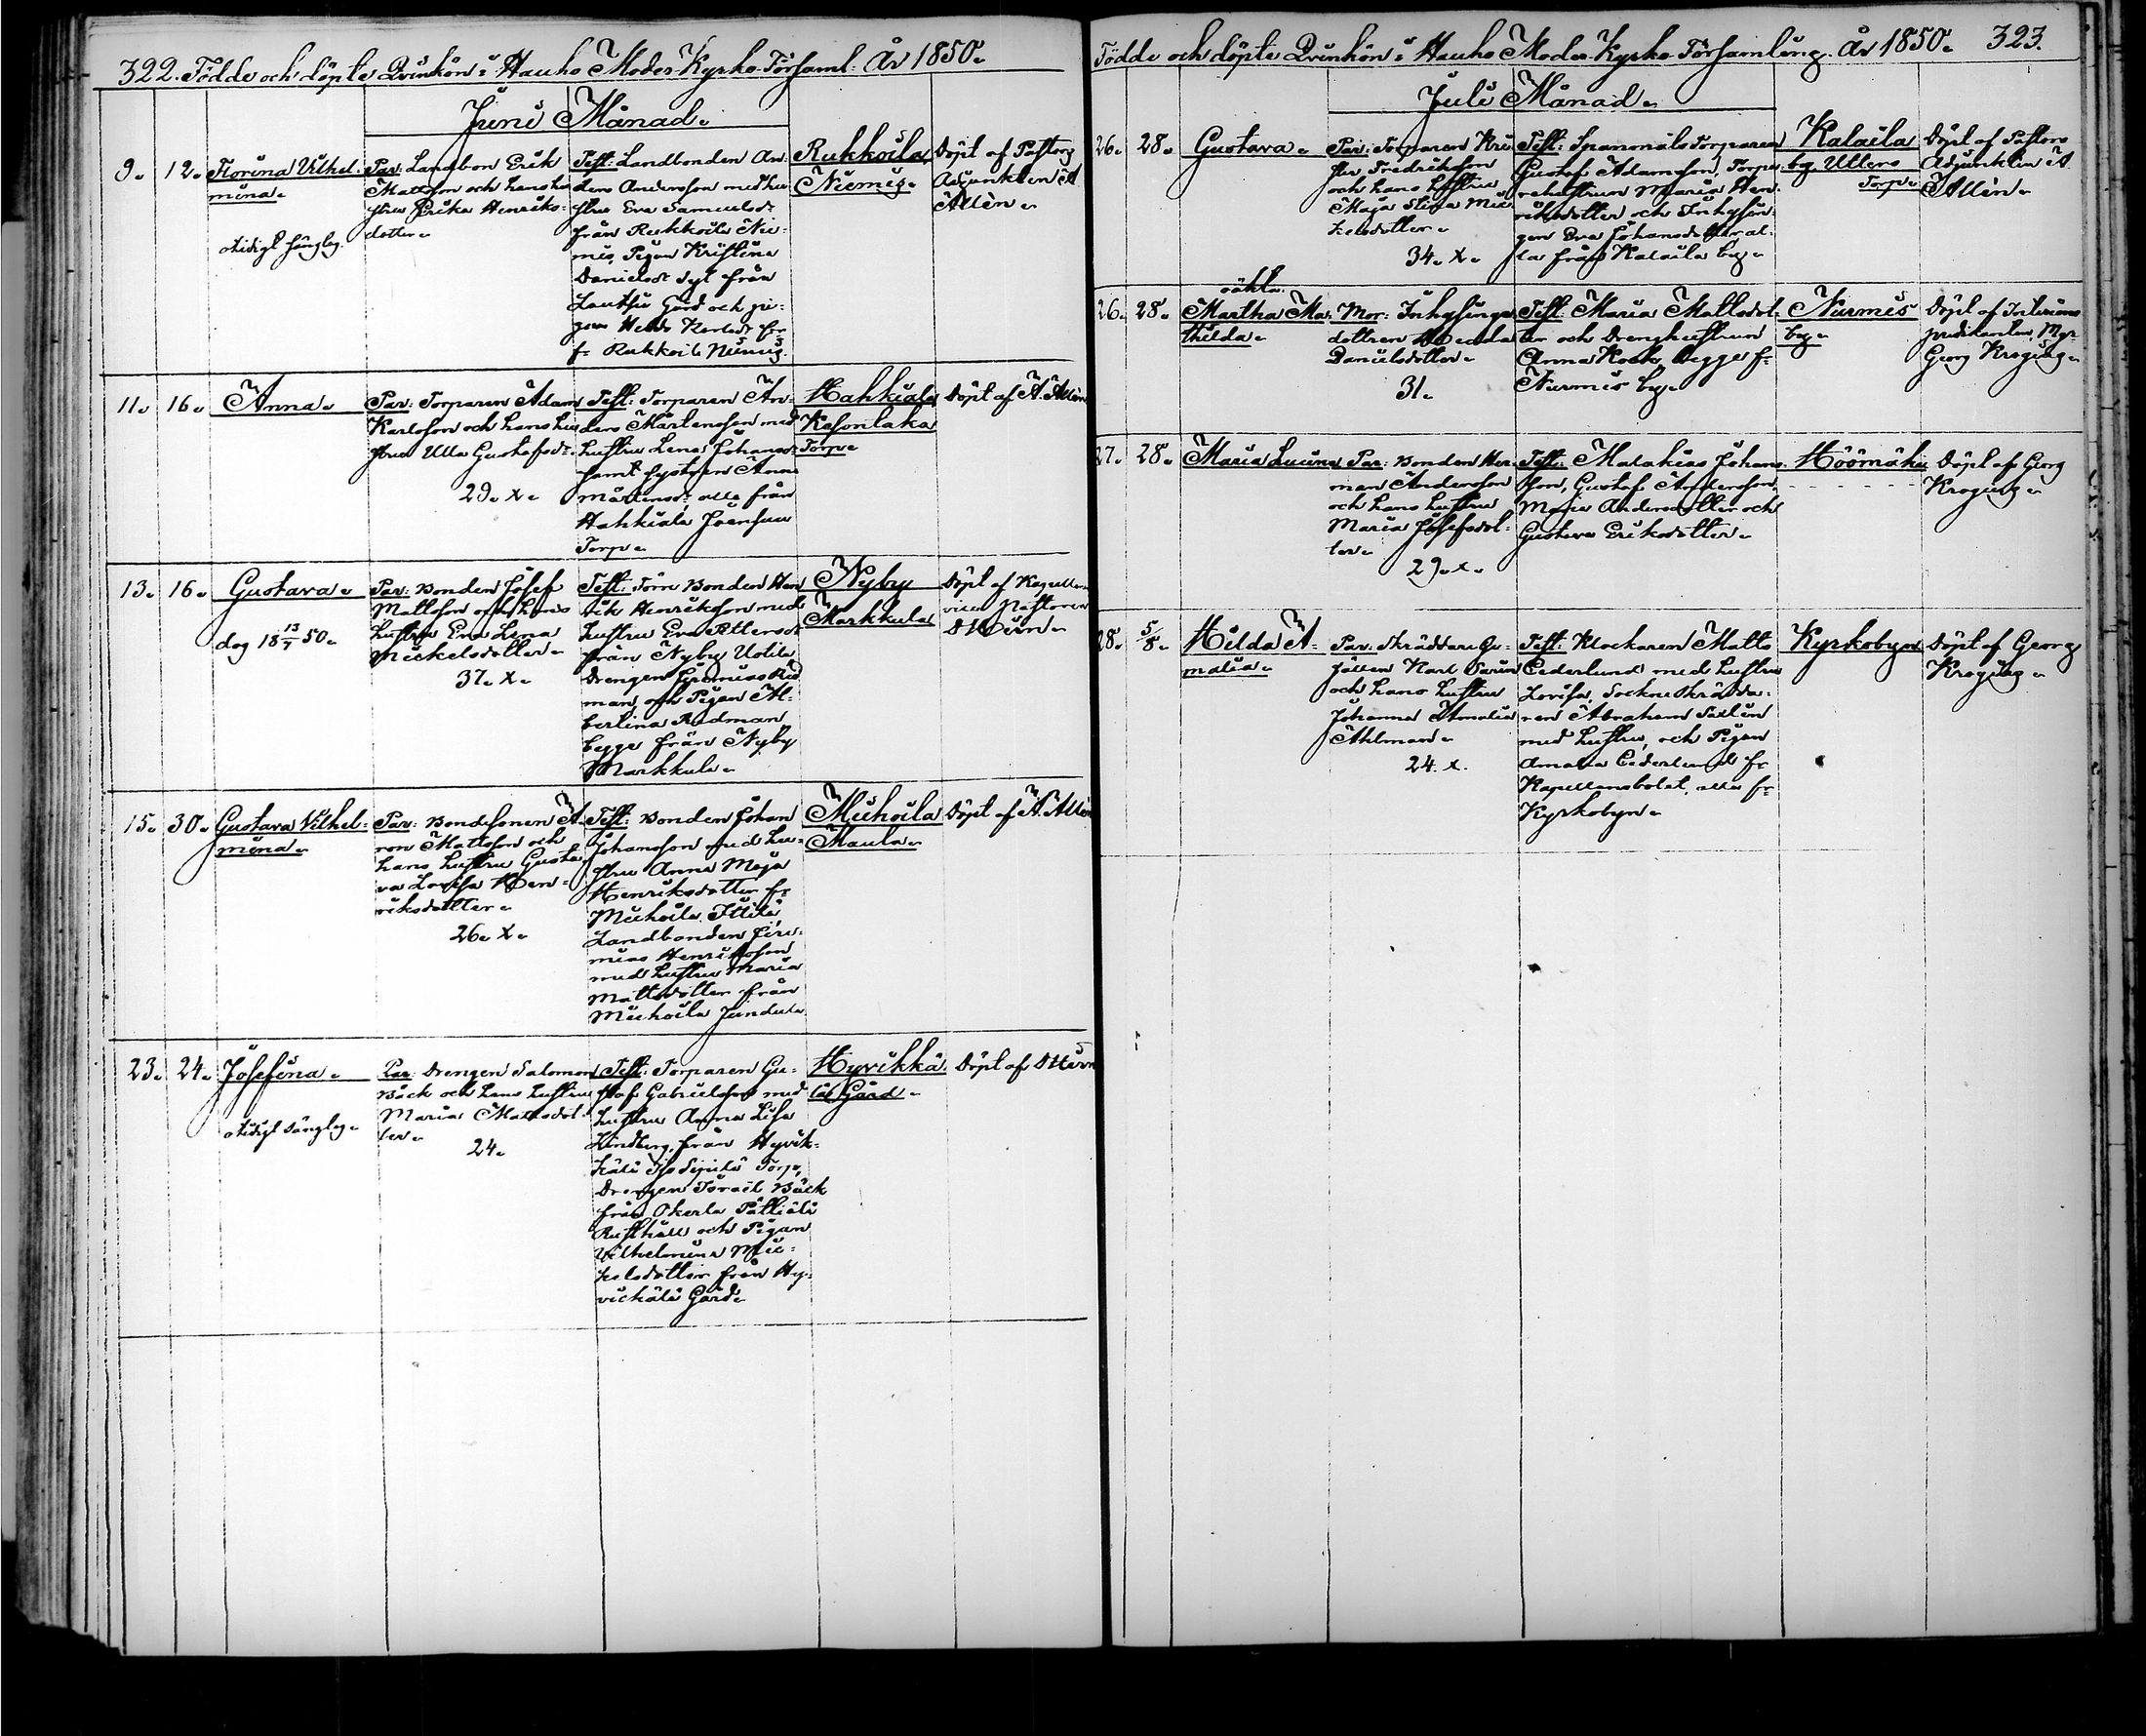 322. Födde och döpte Qvinkön i Hauho Moder Kyrko Församl: År 1850.
Juni Månad.
9. 12. Florina Vilhel-
mina.
otidigt sänglag.
Par: Landbon Erik
Mattsson och hans hu
stru Erika Henriks-
dotter.
Test: Landbonden An-
ders Andersson med hu
stru Eva Samuelsdr
från Rukkoila Nie-
mis, Pigan Kristina
Danielsdr
från
Gård och pi-
gan Karlsdr
fr Rukkoila Niemis.
Rukkoila
Niemis.
Döpt af Pastors
Adjunkten A
Allén.
11. 16. Anna.
Par: Torparen Adam
Karlsson och hans hu
stru Ulla Gustafsdr.
29. x.
Test: Torparen An-
ders Mårtensson med
hustru Lena Johansdr
samt systren Anna
Mårtensdr, alla från
Hahkiala Joensuu
Torp.
Hahkiala
Kesonlaka
Torp.
Döpt af A. Allén
13. 16. Gustava.
dog 18 13/7 50.
Par: Bonden Josef
Mattsson och hans
hustru Eva Lena
Mickelsdotter.
37. x.
Test: Förre Bonden Hen
rik Henriksson med
hustru Eva Pettersdr
från Nyby Uotila
Drengen Jeremias Rid
man, och Pigan Al-
bertina Redman
begge från Nyby
Markkula.
Nyby
Markkula
Döpt af Kapellan
vice Pastoren
D Heurn.
15. 30. Gustava Vilhel-
mina.
Par: Bondesonen A-
ron Mattsson och
hans hustru Gusta
va Lovisa Hen-
riksdotter.
26. x.
Test: Bonden Johan
Johansson med hu-
stru Anna Maja
Henriksdotter fr
Miehoila Ittilä,
Landbonden Jere-
mias Henriksson
med hustru Maria
Mattsdotter från
Miehoila Jundila
Miehoila
Maula.
Döpt af A. Allén
23. 24. Josefina.
otidigt sänglag.
Par: Drengen Salomon
Bäck och hans hustru
Maria Mattsdot
ter.
24.
Test: Torparen Gu-
staf Gabrielsson med
hustru Anna Lisa
Lindberg, från Hyvik-
kälä Iso Torp,
Drengen Israel Bäck
från Okerla Pätiälä
Rusthåll och Pigan
Vilhelmina Mic-
kelsdotter från Hy-
vickälä Gård.
Hyvikkä
lä Gård.
Döpt af D Heurn
Födde och döpte Qvinkön i Hauho Moder Kyrko Församling. År 1850. 323.
Juli Månad.
26. 28. Gustava.
Par: Torparen Kri
ster Fredriksson
och hans hustru
Maja Stina Mic
kelsdotter.
34. x.
Test: Spannmåls Torparen
Gustaf Adamsson, Torpa
rehustrun Maria Hen-
riksdotter och Inhysin-
gen Eva Johansdotter al-
la från Kalaila by.
Kalaila
by. Uttero
Torp.
Döpt af Pastors
Adjunkten A
Allén.
26. 28. oäkta
Martha Ma-
thilda.
Mor: Inhysinge
dottren Hedda
Danielsdotter.
31.
Test: Maria Mattsdot-
ter och Drenghustrun
Anna Kock begge fr
Nurmis by.
Nurmis
by.
Döpt af Interims
predikanten, Mgr
Georg Krogius.
27. 28. Maria Lucina
Par: Bonden Her-
man Andersson
och hans hustru
Maria Josefsdot-
ter.
29. x.
Test: Malakias Johans-
son, Gustaf Andersson,
Maja Andersdotter och
Gustava Eriksdotter.
Höömäki
Döpt af Georg
Krogius.
28. 5/8. Hilda A-
malia.
Par: Skräddare Ge-
sällen Karl Sevin
och hans hustru
Johanna Amalia
Ahlman.
24. x.
Test: Klockaren Matts
Cederlund med hustru
Lovisa, Sockne Skrädda-
ren Abraham Sallén
med hustru, och Pigan
Amalia Cederlund fr
Kapellansbolet, alla fr
Kyrkobyn.
Kyrkobyn
Döpt af Georg
Krogius.